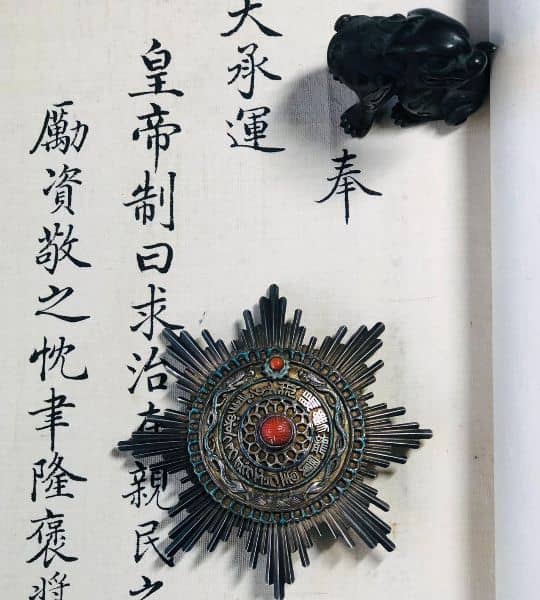 奉
天承運
皇帝制曰求治在親民之
勵資敬之忱聿隆褒